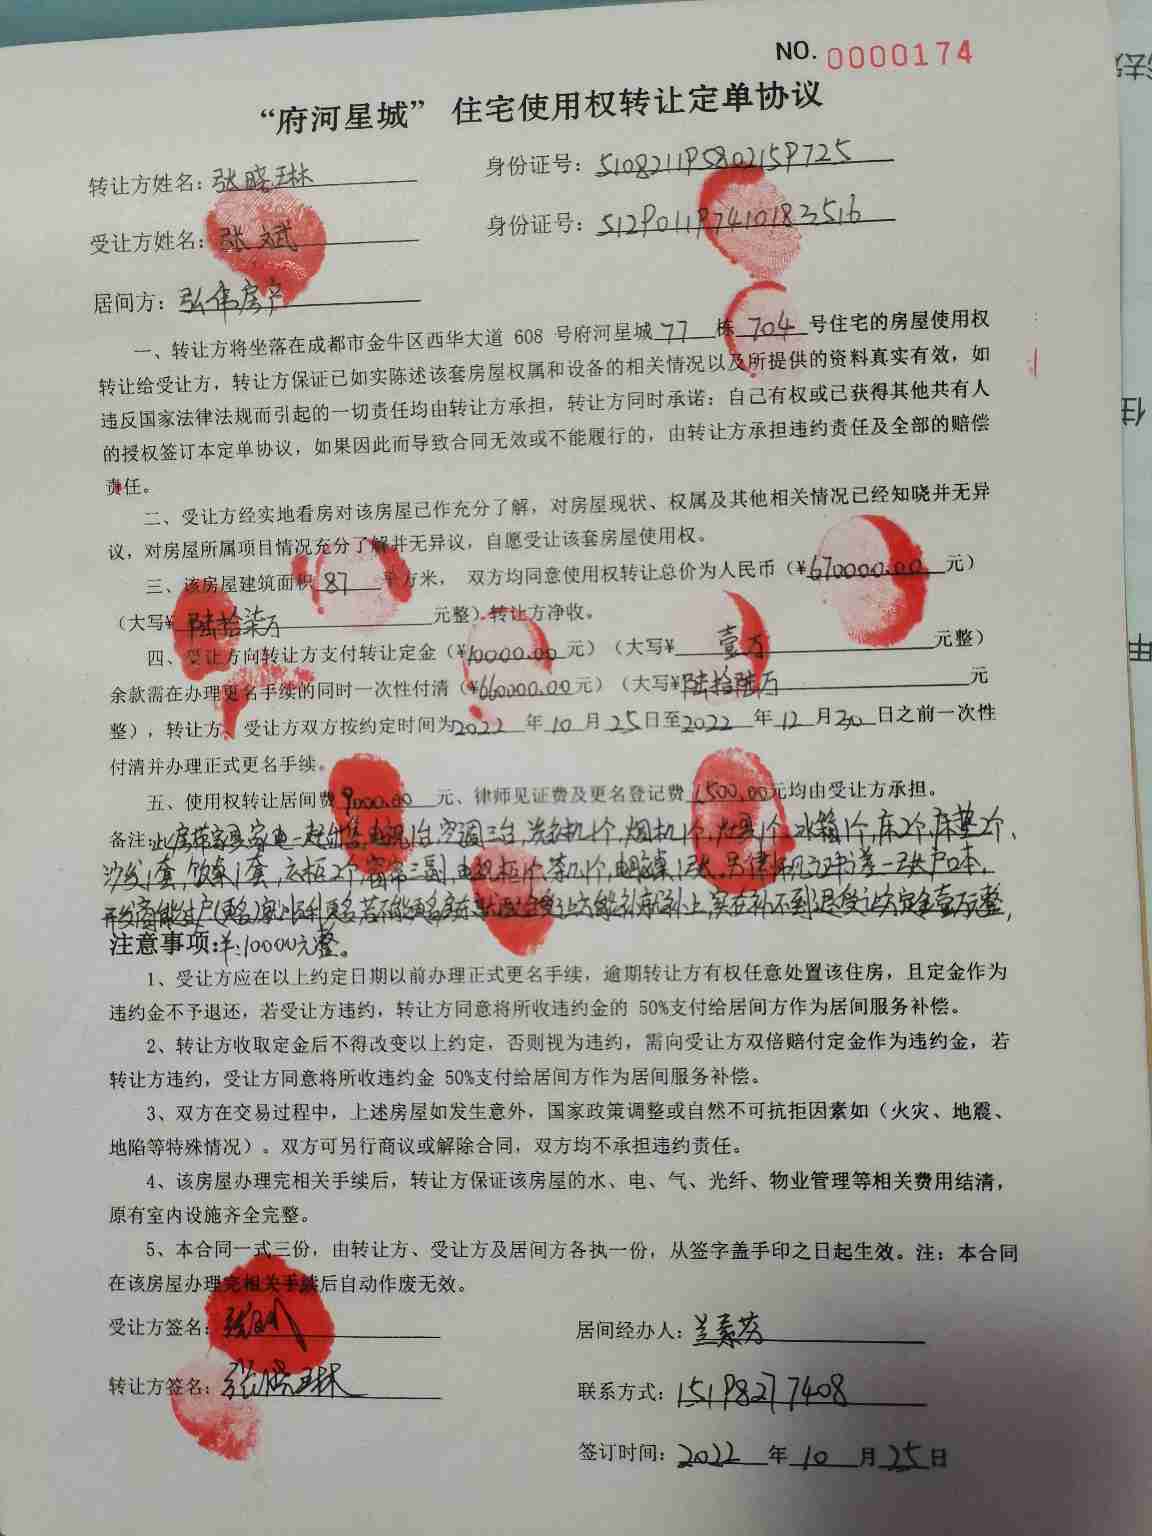 NO. 0000174
“府河星城” 住宅使用权转让定单协议
转让方姓名：张晓琳 身份证号：510821195802159725
受让方姓名：张斌 身份证号：512901197410183516
居间方：弘伟房产
一、转让方将坐落在成都市金牛区西华大道 608 号府河星城 77 栋 704 号住宅的房屋使用权
转让给受让方，转让方保证已如实陈述该套房屋权属和设备的相关情况以及所提供的资料真实有效，如
违反国家法律法规而引起的一切责任均由转让方承担，转让方同时承诺：自己有权或已获得其他共有人
的授权签订本定单协议，如果因此而导致合同无效或不能履行的，由转让方承担违约责任及全部的赔偿
责任。
二、受让方经实地看房对该房屋已作充分了解，对房屋现状、权属及其他相关情况已经知晓并无异
议，对房屋所属项目情况充分了解并无异议，自愿受让该套房屋使用权。
三、该房屋建筑面积 87 平方米， 双方均同意使用权转让总价为人民币（¥670000.00 元）
（大写¥ 陆拾柒万 元整）转让方净收。
四、受让方向转让方支付转让定金（¥10000.00 元）（大写¥ 壹万 元整）
余款需在办理更名手续的同时一次性付清（¥660000.00元）（大写¥陆拾陆万 元
整），转让方、受让方双方按约定时间为2022 年 10 月 25 日至2022 年 12 月 30 日之前一次性
付清并办理正式更名手续。
五、使用权转让居间费 9000.00 元、律师见证费及更名登记费 1500.00元均由受让方承担。
备注：此房带家具家电一起出售，电视1台，空调三台，洗衣机1个，烟机1个，灶具1个，冰箱1个，床2个，床垫2个、
沙发1套，饭桌1套，衣柜2个，窗帘三副，电视柜1个，茶几1个，电脑桌1张。
补上，实在补不到退受让方定金壹万整，
注意事项：¥:10000元整。
1、受让方应在以上约定日期以前办理正式更名手续，逾期转让方有权任意处置该住房，且定金作为
违约金不予退还，若受让方违约，转让方同意将所收违约金的 50%支付给居间方作为居间服务补偿。
2、转让方收取定金后不得改变以上约定，否则视为违约，需向受让方双倍赔付定金作为违约金，若
转让方违约，受让方同意将所收违约金 50%支付给居间方作为居间服务补偿。
3、双方在交易过程中，上述房屋如发生意外，国家政策调整或自然不可抗拒因素如（火灾、地震、
地陷等特殊情况）。双方可另行商议或解除合同，双方均不承担违约责任。
4、该房屋办理完相关手续后，转让方保证该房屋的水、电、气、光纤、物业管理等相关费用结清，
原有室内设施齐全完整。
5、本合同一式三份，由转让方、受让方及居间方各执一份，从签字盖手印之日起生效。注：本合同
在该房屋办理完相关手续后自动作废无效。
受让方签名：张斌 居间经办人：兰素芬
转让方签名：张晓琳 联系方式：15198277408
签订时间：2022 年 10 月 25 日